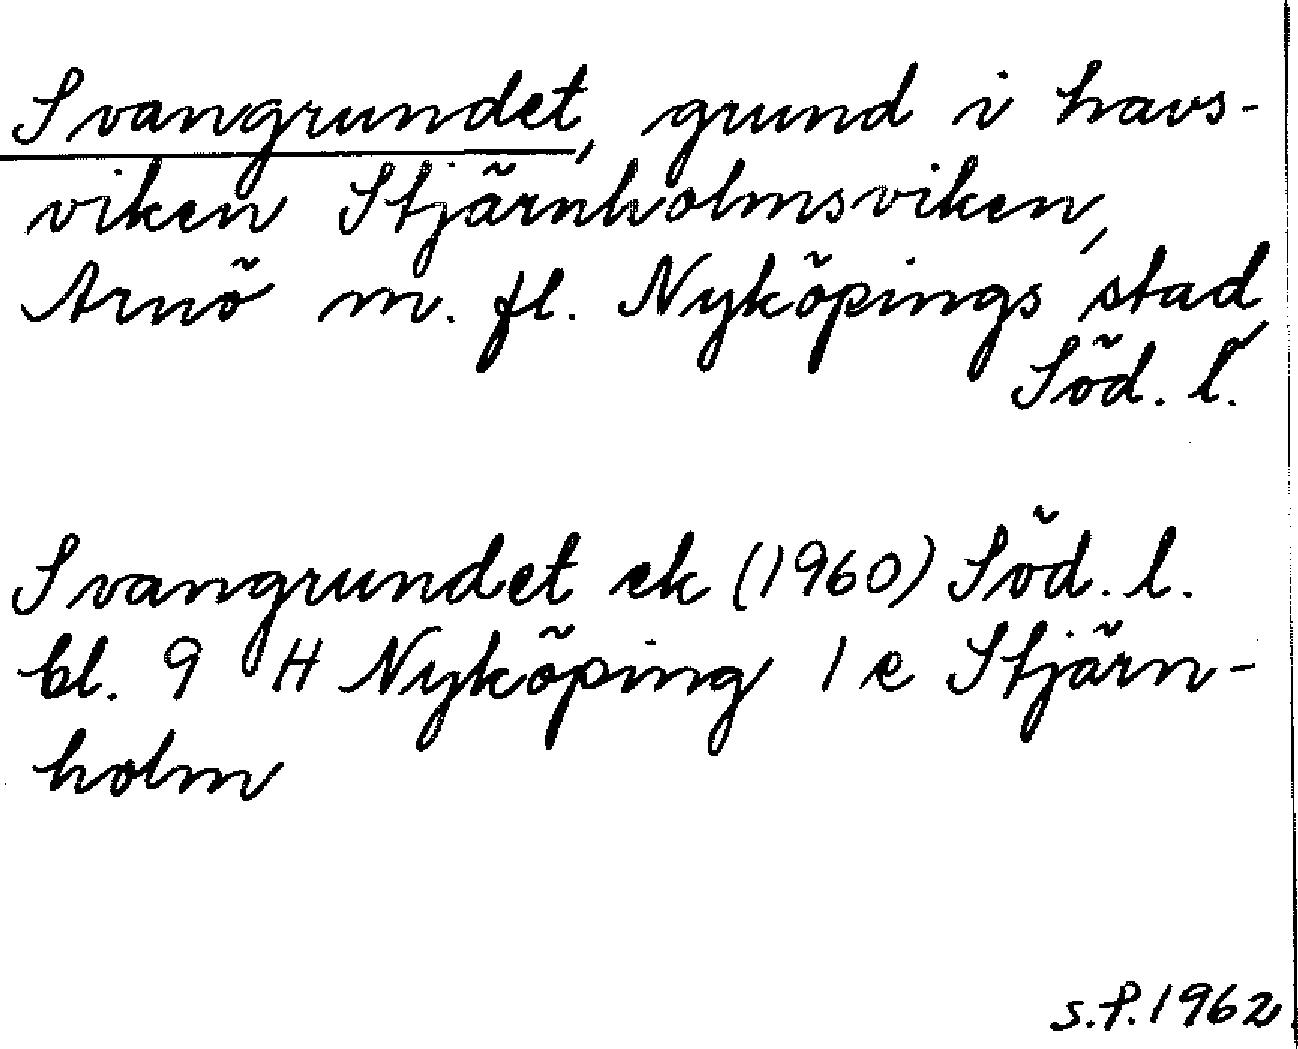 Svangrundet, grund i havs-
viken Stjärnholmsviken,
Arnö m. fl. Nyköpings stad,
Söd. l.
Svangrundet ek (1960) Söd. l.
bl. 9 H Nyköping 1 e Stjärn-
holm
S.P. 1962